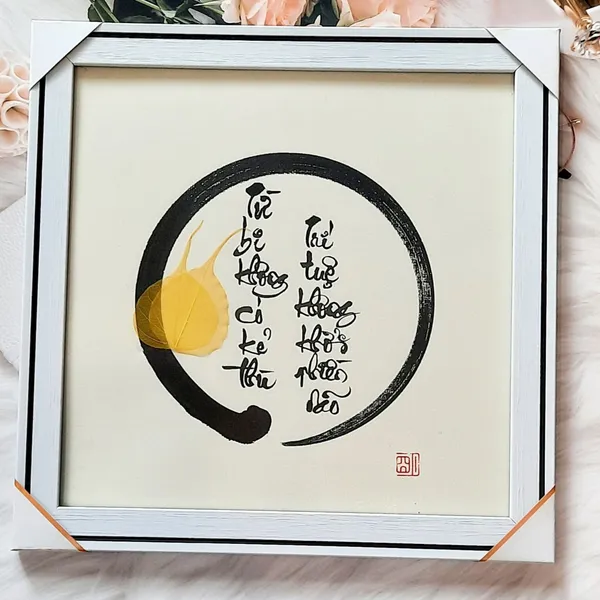 Từ bi không có kẻ thù
Trí tuệ không khởi phiền não